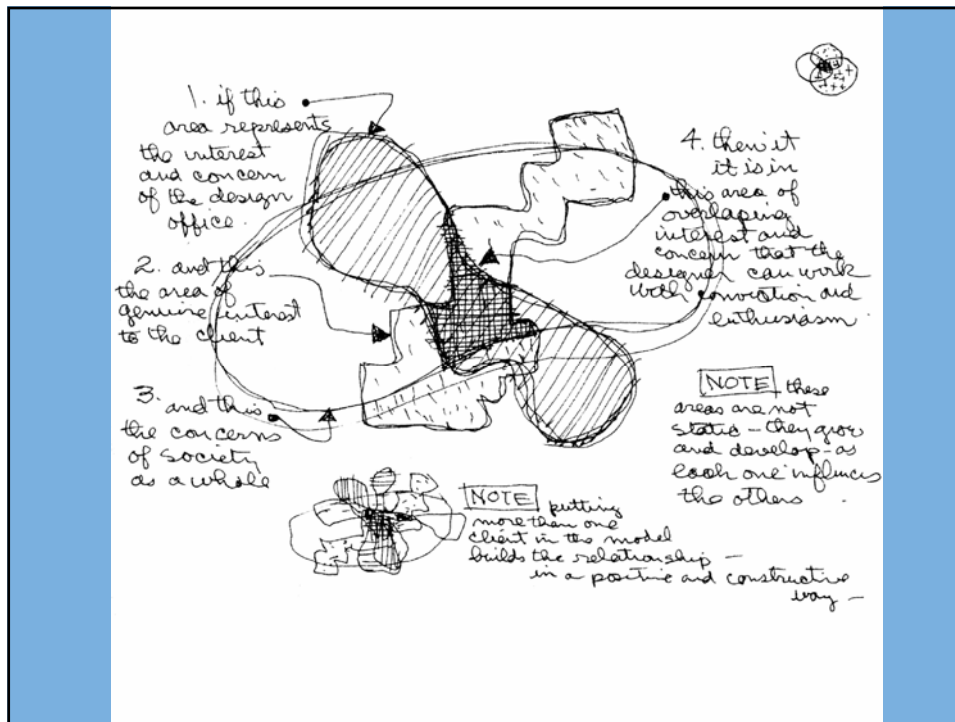 1. if this
area represents
the interest
and concern
of the design
office.
2. and this
the area of
genuine interest
to the client
3. and this
the concerns
of society
as a whole
4. then it
it is in
this area of
overlaping
interest and
concern that the
designer can work
with conviction and
enthusiasm
NOTE these
areas are not
static – they grow
and develop – as
each one influences
the others .
NOTE putting
more than one
client in the model
builds the relationship –
in a positive and constructive
way –